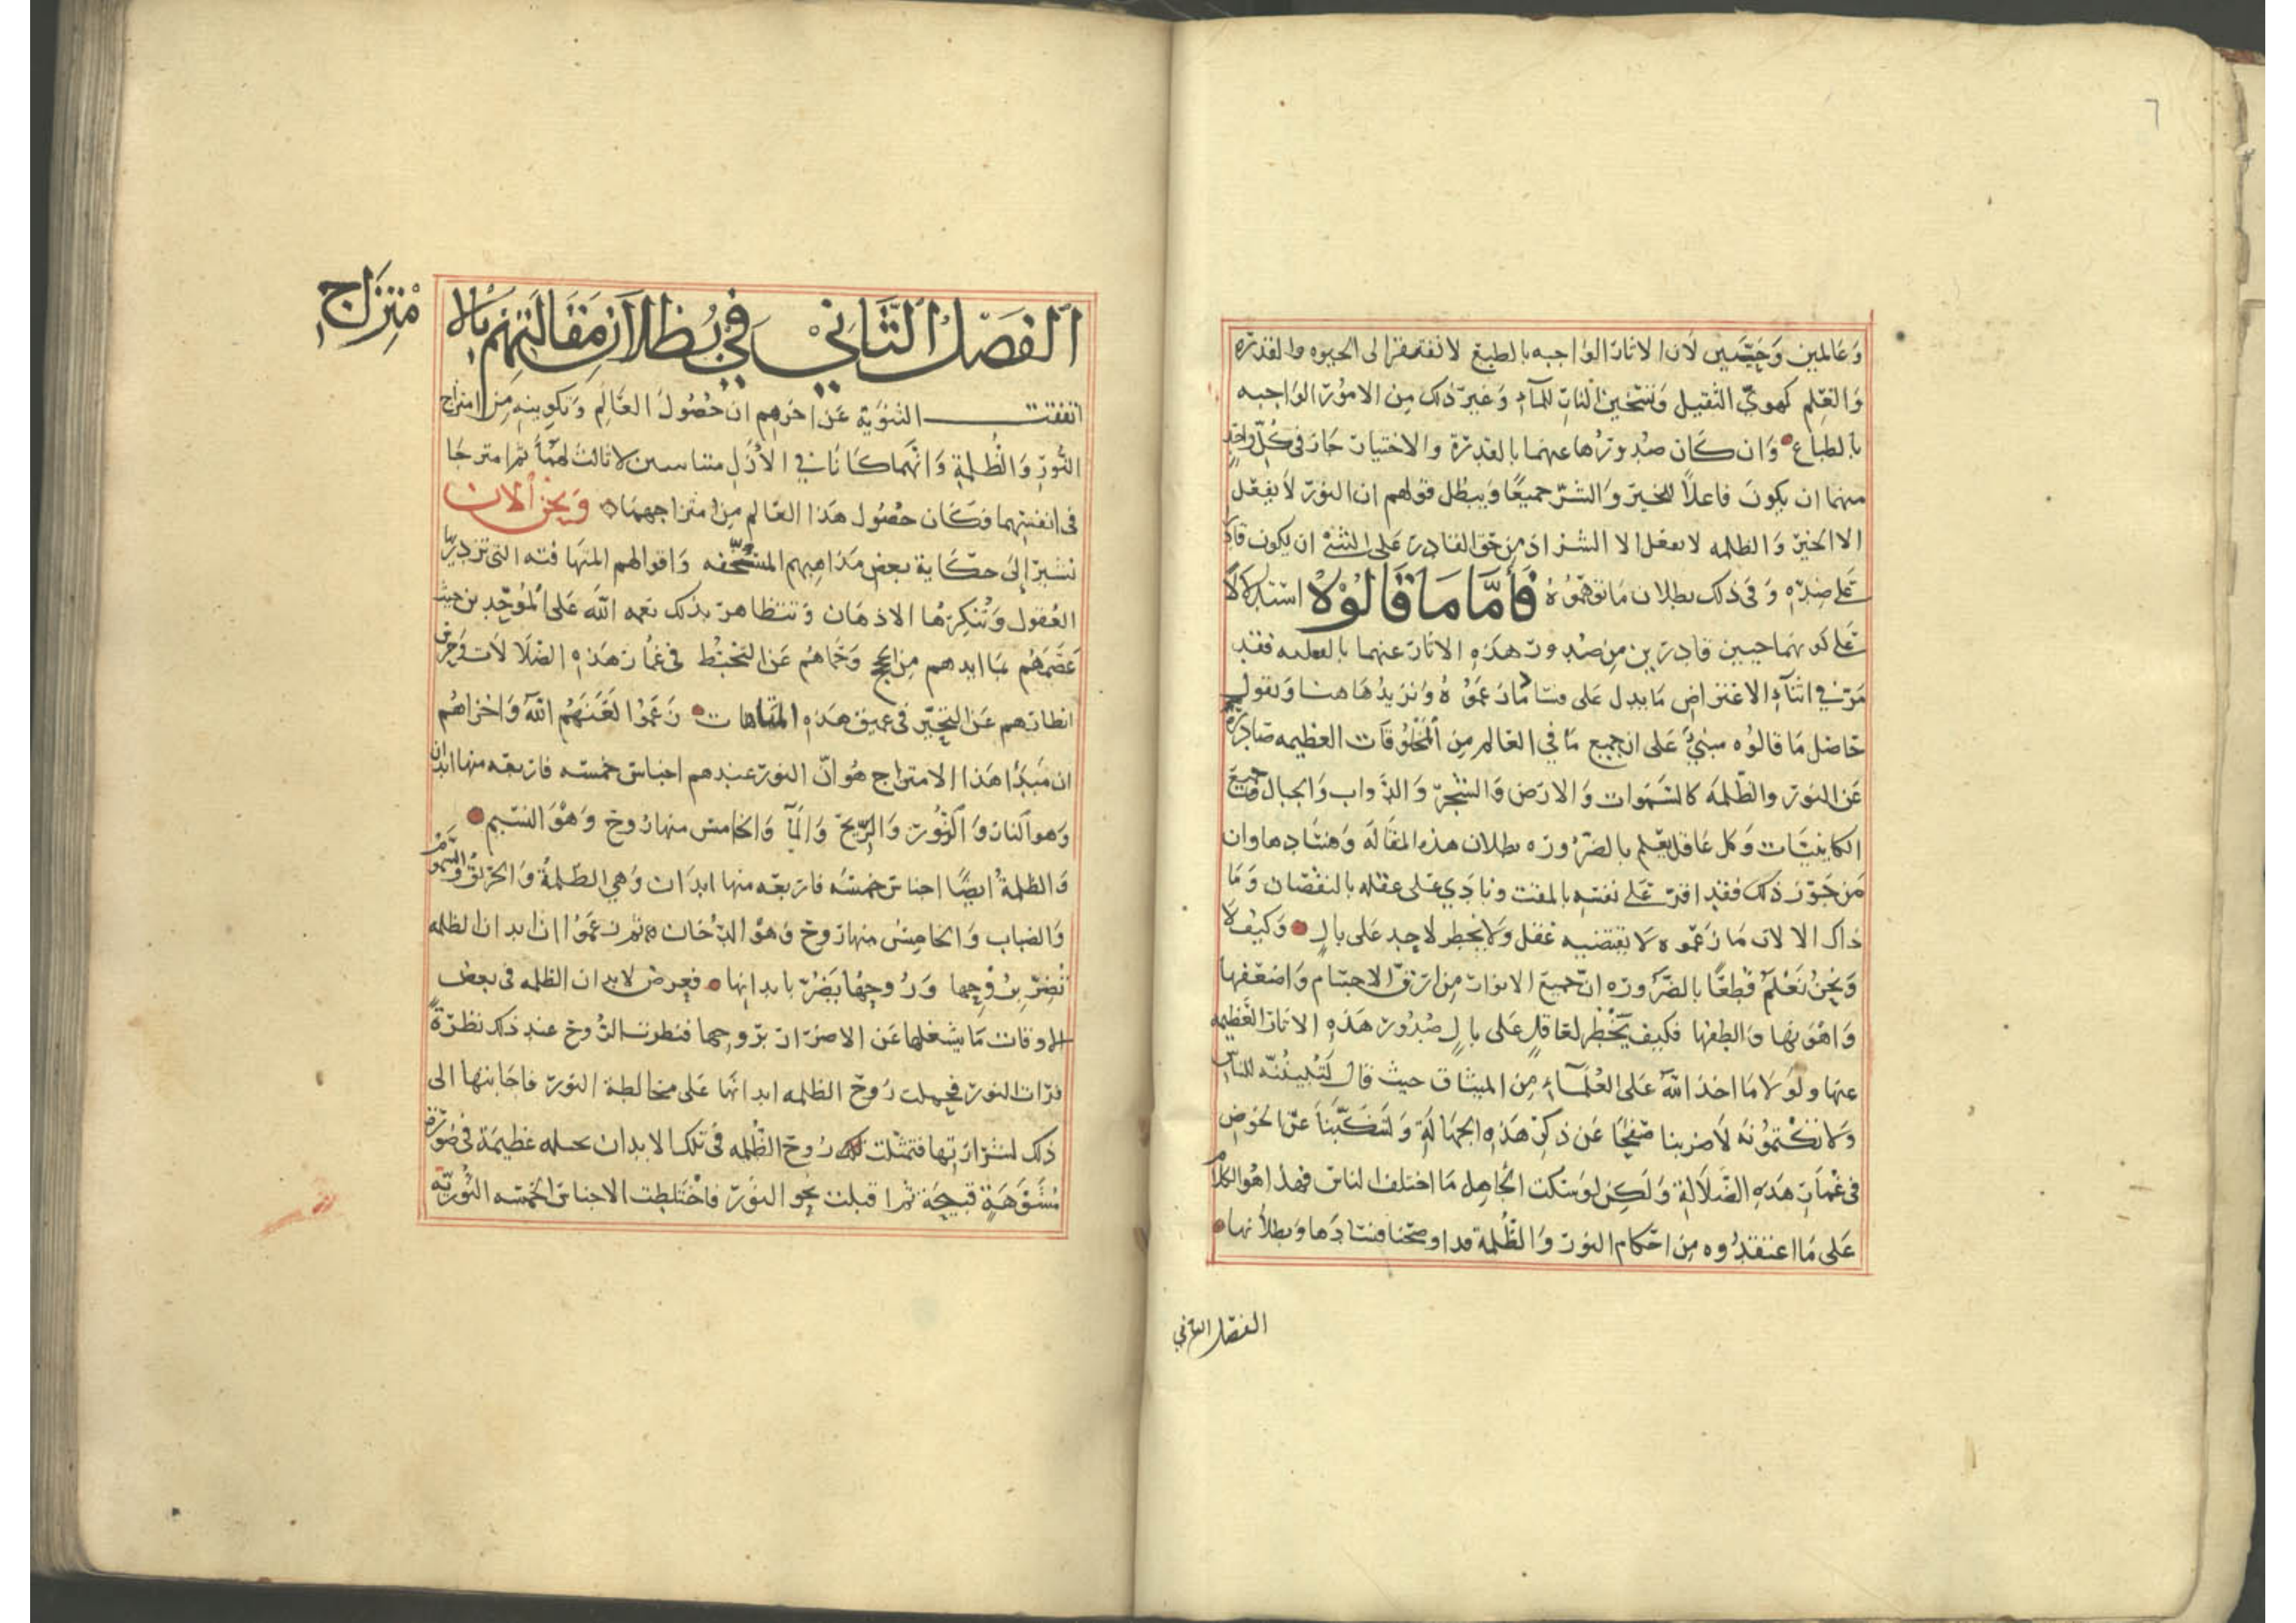 ٦
وَعَالمين وَحِيَّيين لان الاثار الوَاجبه بالطبع لا تفتقر الى الحيوه والقدره
وَالعِلم كهوِيّ الثقيل وَتسْخين النار للمآء وَغير ذلك مِن الامُور الوَاجبه
بالطباع وَان كَان صدورُها عنهما بالقدرة والاختيار جاز في كلّ واحدٍ
منهما ان يكون فاعلاً للخير وَالشرّ جميعًا وَيبطل قولهم ان النور لا يفعل
الا الخير وَالظلمه لا تفعل الا الشر اذ مِن حق القادر على الشئ ان يكون قادرًا
عَلى ضِدّه وَفى ذلك بطلان مَا توهّمُوهُ فَأَمَّا مَا قَالُوْهُ استدلالاً
عَلى كونهما حيين قادرين مِن صُدور هَذهِ الاثار عنهما بالعليه فقد
مَرّ في اثنآء الاعتراض مَا يدل عَلى فساد مَا زعمُوهُ وَنزيدُ هَاهنا وَنقول
حَاصل مَا قالوُه مبنيٌّ عَلى ان جميع مَا في العَالم مِن المخلوقَات العظيمه صَادرة
عَن النور والظلمَه كالسّمَوات وَالارض وَالشجر وَالدّواب وَالجبال وَجميع
الكاينَات وَكل عَاقل يعلم بالضرُوره بطلان هذه المقَالَه وَفسَادها وان
مَن جَوّز ذلك فقد اقرّ عَلى نفسِه بالمقت ونادَي عَلى عقله بالنقصان وَمَا
ذاك الا لان مَا زعمُوه لا يقتضيه عَقل وَلا يخطر لاحدٍ عَلى بالٍ وَكيف لا
وَنحنُ نَعْلمُ قَطعًا بالضرُوره ان جميعَ الانوار مِن ارقّ الاجسَام وَاضعفها
وَاهْوَنها وَالطفها فكيف يَخْطر لعَاقلٍ عَلى بالٍ صُدُور هَذهِ الاثار العَظيمه
عنها ولوْلا مَا اخذ الله عَلى العُلمَآءِ مِن الميثاق حيث قال لتُبيِّنُنّه للناس
وَلا تكْتمُونُه لاضربنا صَفحًا عَن ذكر هَذهِ الجهَالَةِ وَلتنكّبنَا عَن الخَوض
فى غمَار هَذهِ الضّلالةِ وَلكِن لو سَكت الجَاهِل مَا اختلف الناس فهذا هُو الكلامُ
عَلى مَا اعتقدُوه مِن احكام النور وَالظلمة قد اوضحنا فسَادَها وَبطلانها
الفصل الثاني
اَلفَصْلُ الثَّانيْ فيْ بُطْلاَن مَقَالَتِهِمْ بِالاِ
مْتِزَاجِ
اتفقت الثنَوَيّة عَن اخرهم ان حُصُولَ العَالم وَتكوينه مِن امتزاج
النُّور وَالظُلمةِ وَانهمَا كانا في الأزل متنافسين لا ثالث لهُمَا ثم امتزجَا
فى انفسِهما فكَان حصُول هَذا العَالم مِن امتزاجهمَا وَنحن الان
نشير إلى حكَاية بعض مَذاهبهم المسخّفه وَاقوالهم المتهافته التى تزدريها
العُقول وَتُنكِرهَا الاذهَان وَتتظاهر بذلك نعمه الله عَلى الموحّدين حيث
عَصَمَهُم بمَا ايدهم مِن الحجج وَحمَاهُم عَن التخبّط فى غمار هَذهِ الضلالات وَحرس
انظارهم عَن التحيّر في عميق هَذهِ المتاهات زعمُوا لعَنَهُم الله وَاخزاهُم
ان مَبدَأ هَذا الامتزاج هُو انّ النور عندهم اجناس خمسَه فاربعه منها ابدان
وَهو النار وَالنُور وَالرّيح وَالمآ وَالخامس منها رُوح وَهْوَ النسيم
وَالظلمةُ ايضًا اجناس خمسَه فاربعه منها ابدَان وَهي الظلمةُ وَالحَريق وَالسَّمُومُ
وَالضباب وَالخامِسُ منها رُوح وَهوَ الدّخان ثم زعمُوا ان ابدان الظلمه
تُضِرّ برُوْحِها وَرُوحهَا يَضُرّ بابدانها فعرض لابدان الظلمه فى بعض
الاوقات مَا يشغلها عَن الاضرار برُوحِها فنظرت الرُّوح عند ذلك نظرَةً
فرَات النور فحملت رُوح الظلمه ابدانها عَلى مخالطة النور فاجَابتها الى
ذلك لشرارتها فتمثلت تلك رُوح الظُلمه فى تلك الابدان عظيمَة فى صُورَةٍ
مُشوَّهَةٍ قبيحَة ثم اقبلت نحو النوَر فاخْتَلطت الاجناس الخمسَه النُوريّه